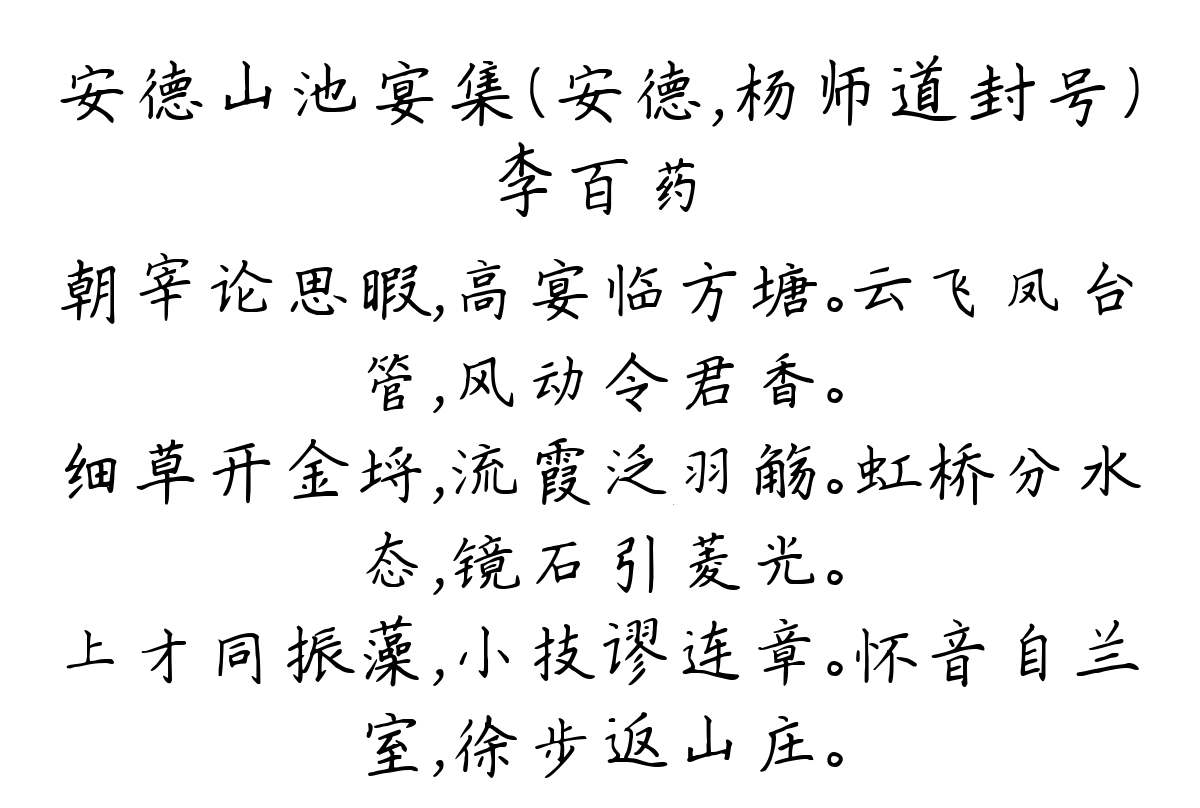 安德山池宴集(安德,杨师道封号)
李百药
朝宰论思暇,高宴临方塘。云飞凤台
管,风动令君香。
细草开金埒,流霞泛羽觞。虹桥分水
态,镜石引菱光。
上才同振藻,小技谬连章。怀音自兰
室,徐步返山庄。